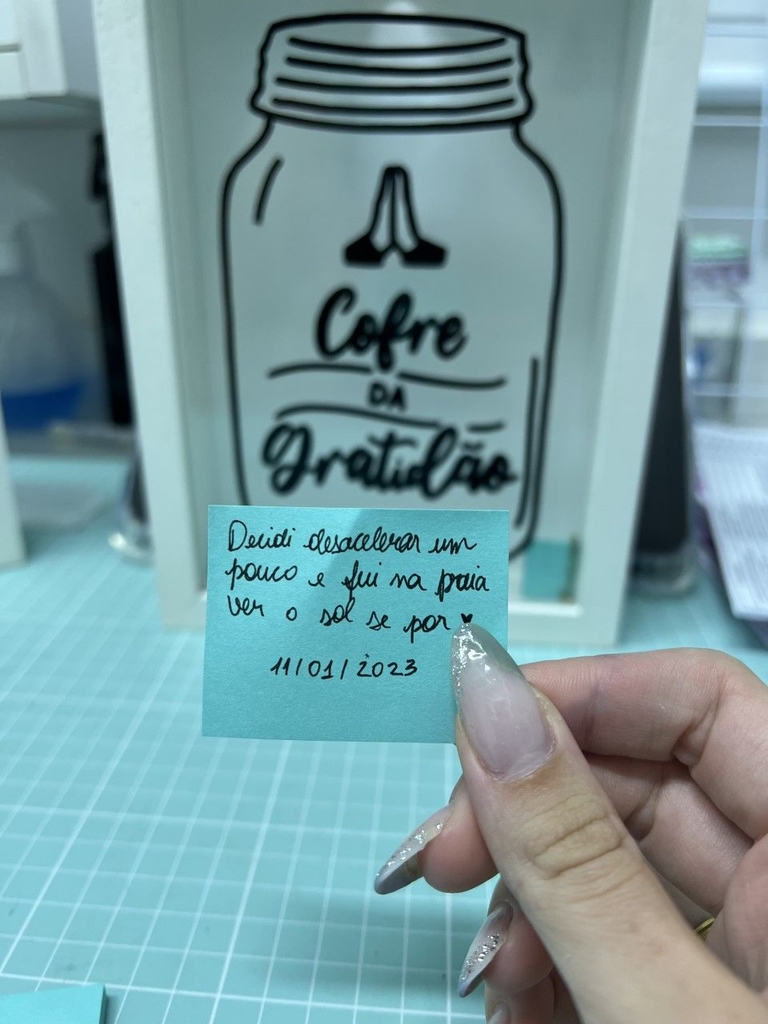 Cofre
DA
Gratidão
Decidi desacelerar um
pouco e fui na praia
ver o sol se por ♥
11/01/2023